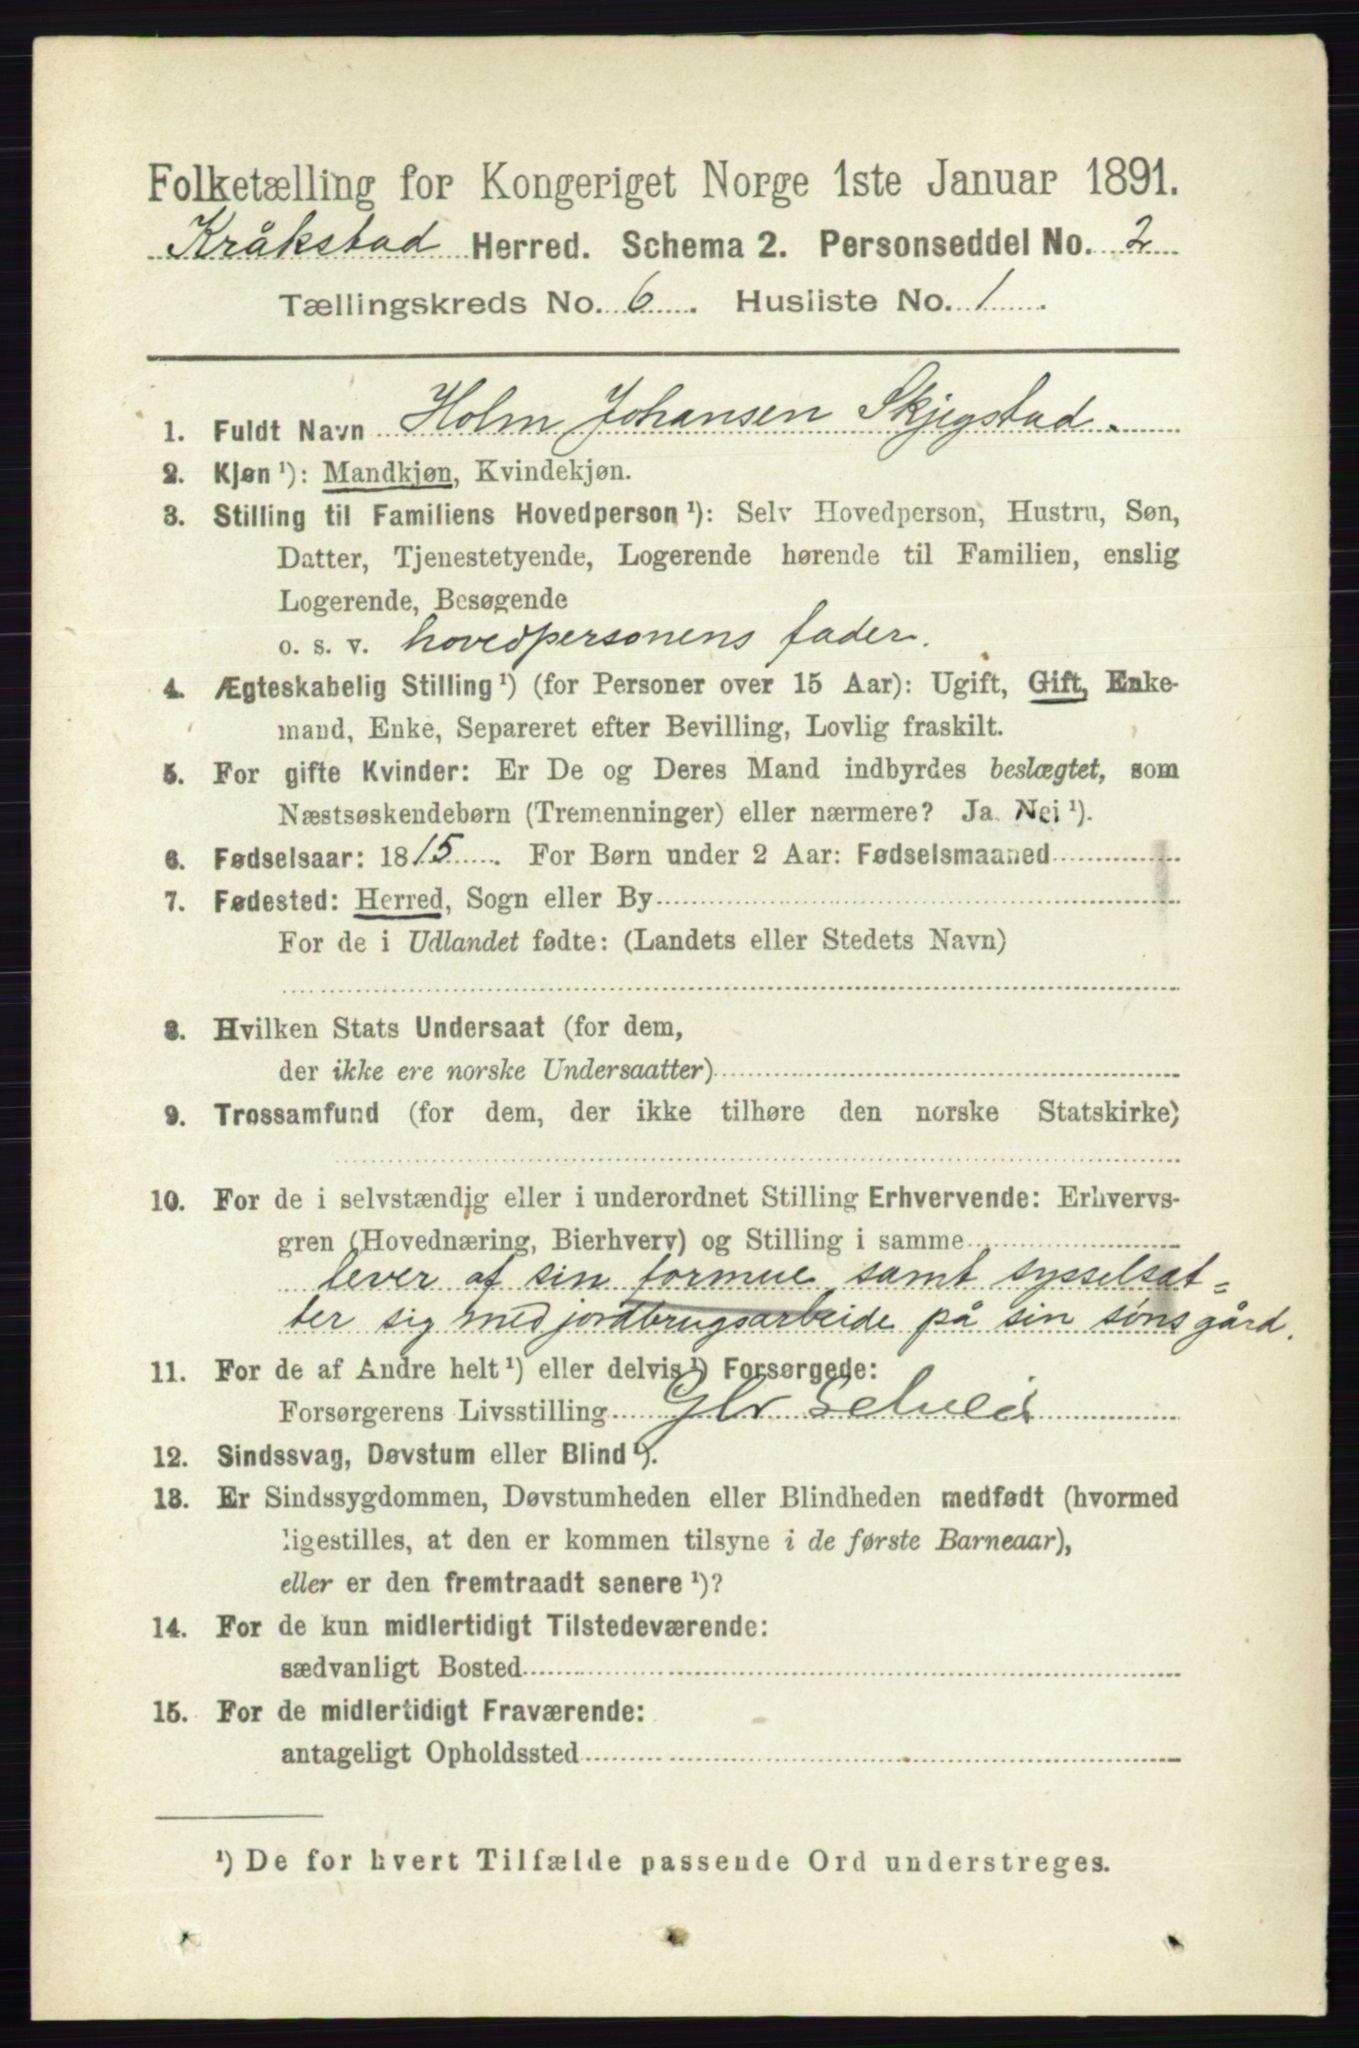 Folketælling for Kongeriget Norge 1ste Januar 1891.
Kråkstad Herred. Schema 2. Personseddel No. 2
Tællingskreds No. 6. Husliste No. 1.
1. Fuldt Navn Holm Johansen Skjegstad.
2. Kjøn ¹): Mandkjøn, Kvindekjøn.
3. Stilling til Familiens Hovedperson ¹): Selv Hovedperson, Hustru, Søn,
Datter, Tjenestetyende, Logerende hørende til Familien, enslig
Logerende, Besøgende
o. s. v. hovedpersonens fader.
4. Ægteskabelig Stilling ¹) (for Personer over 15 Aar): Ugift, Gift, Enke-
mand, Enke, Separeret efter Bevilling, Lovlig fraskilt.
5. For gifte Kvinder: Er De og Deres Mand indbyrdes beslægtet, som
Næstsøskendebørn (Tremenninger) eller nærmere? Ja. Nei ¹).
6. Fødselsaar: 1815. For Børn under 2 Aar: Fødselsmaaned
7. Fødested: Herred, Sogn eller By
For de i Udlandet fødte: (Landets eller Stedets Navn)
8. Hvilken Stats Undersaat (for dem,
der ikke ere norske Undersaatter)
9. Trossamfund (for dem, der ikke tilhøre den norske Statskirke)
10. For de i selvstændig eller i underordnet Stilling Erhvervende: Erhvervs-
gren (Hovednæring, Bierhverv) og Stilling i samme
lever af sin formue samt sysselsat=
ter sig med jordbrugsarbeide på sin søns gård.
11. For de af Andre helt ¹) eller delvis ¹) Forsørgede:
Forsørgerens Livsstilling Gbr Selveier
12. Sindssvag, Døvstum eller Blind ¹).
13. Er Sindssygdommen, Døvstumheden eller Blindheden medfødt (hvormed
ligestilles, at den er kommen tilsyne i de første Barneaar),
eller er den fremtraadt senere ¹)?
14. For de kun midlertidigt Tilstedeværende:
sædvanligt Bosted
15. For de midlertidigt Fraværende:
antageligt Opholdssted
¹) De for hvert Tilfælde passende Ord understreges.